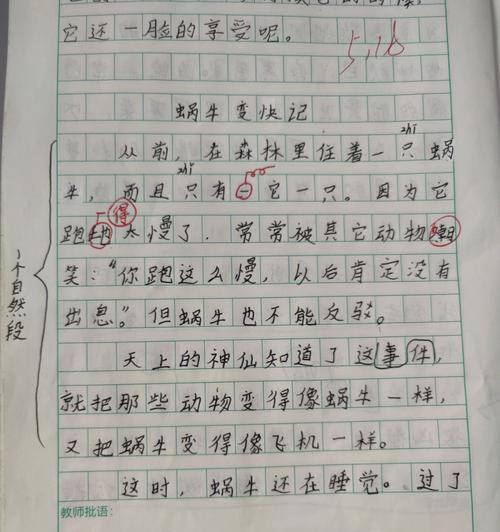 它还一脸的享受呢。
5,16
蜗牛变快记
zhǐ
从前，在森林里住着一只蜗
zhǐ
牛，而且只有一它一只。因为它
得
跑地太慢了，常常被其它动物嘲
笑："你跑这么慢，以后肯定没有
出息。"但蜗牛也不能反驳。
天上的神仙知道了这事件，
就把那些动物变得像蜗牛一样，
又把蜗牛变得像飞机一样。
这时，蜗牛还在睡觉。过了
教师批语：
1个自然段